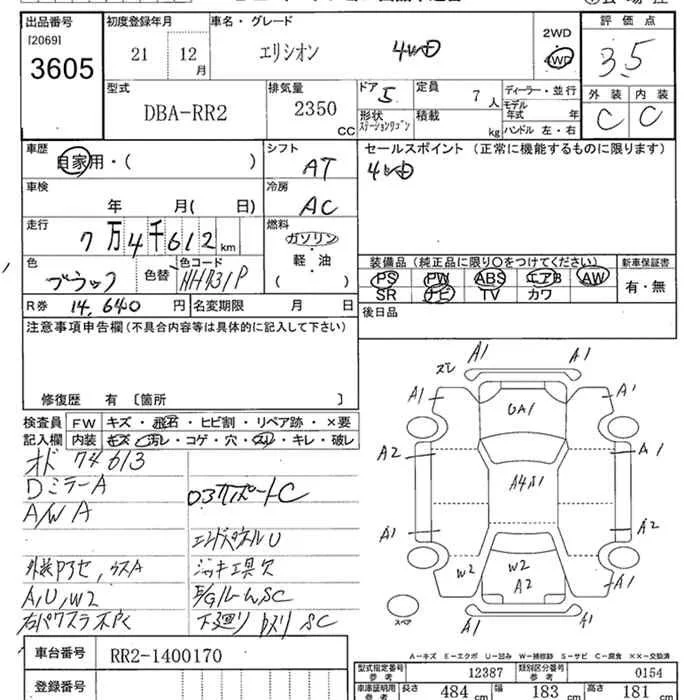 出品番号 初度登録年月 車名・グレード 2WD 評価点
[2069] 3605 21 12月 エリシオン 4WD 4WD 3.5
型式 排気量 ドア 5 定員 7人 ディーラー・並行 外装 内装
DBA-RR2 2350 CC 形状 ステーションワゴン 積載 kg モデル年式 年 C C
ハンドル 左・右
車歴 自家用・( ) シフト AT セールスポイント(正常に機能するものに限ります)
車検 年 月( 日) 冷房 AC 4WD
走行 7万4千612km 燃料 ガソリン・軽・油 ( )
色 ブラック 色替 色コード NH731P
装備品(純正品に限り○をつけてください) 新車保証書
PS PW ABS エアB AW 有・無
SR ナビ TV カワ
R券 14,640円 名変期限 月 日 後日品
注意事項申告欄(不具合内容等は具体的に記入して下さい)
修復歴 有〔箇所 〕
検査員 FW キズ・飛石・ヒビ割・リペア跡・×要
記入欄 内装 キズ・汚レ・コゲ・穴・スレ・キレ・破レ
オド 74613
DミラーA
A/W A C
エンドパネルU
ジャッキ工具欠
A,U,W2 E/GルームSC
右パワスラ不良 下廻り SC
ズレ A1 A1
A1 UA1 A1
A2 A1
A4A1
A1 A2
W2 W2 A2 A1
スペア A1 A1
A-キズ E-エクボ U-凹み W-補修跡 S-サビ C-腐食 ××-交換済
車台番号 RR2-1400170
登録番号
型式指定番号 12387 類別区分番号 0154
車庫証明用参考 長さ 484cm 幅 183cm 高さ 181cm